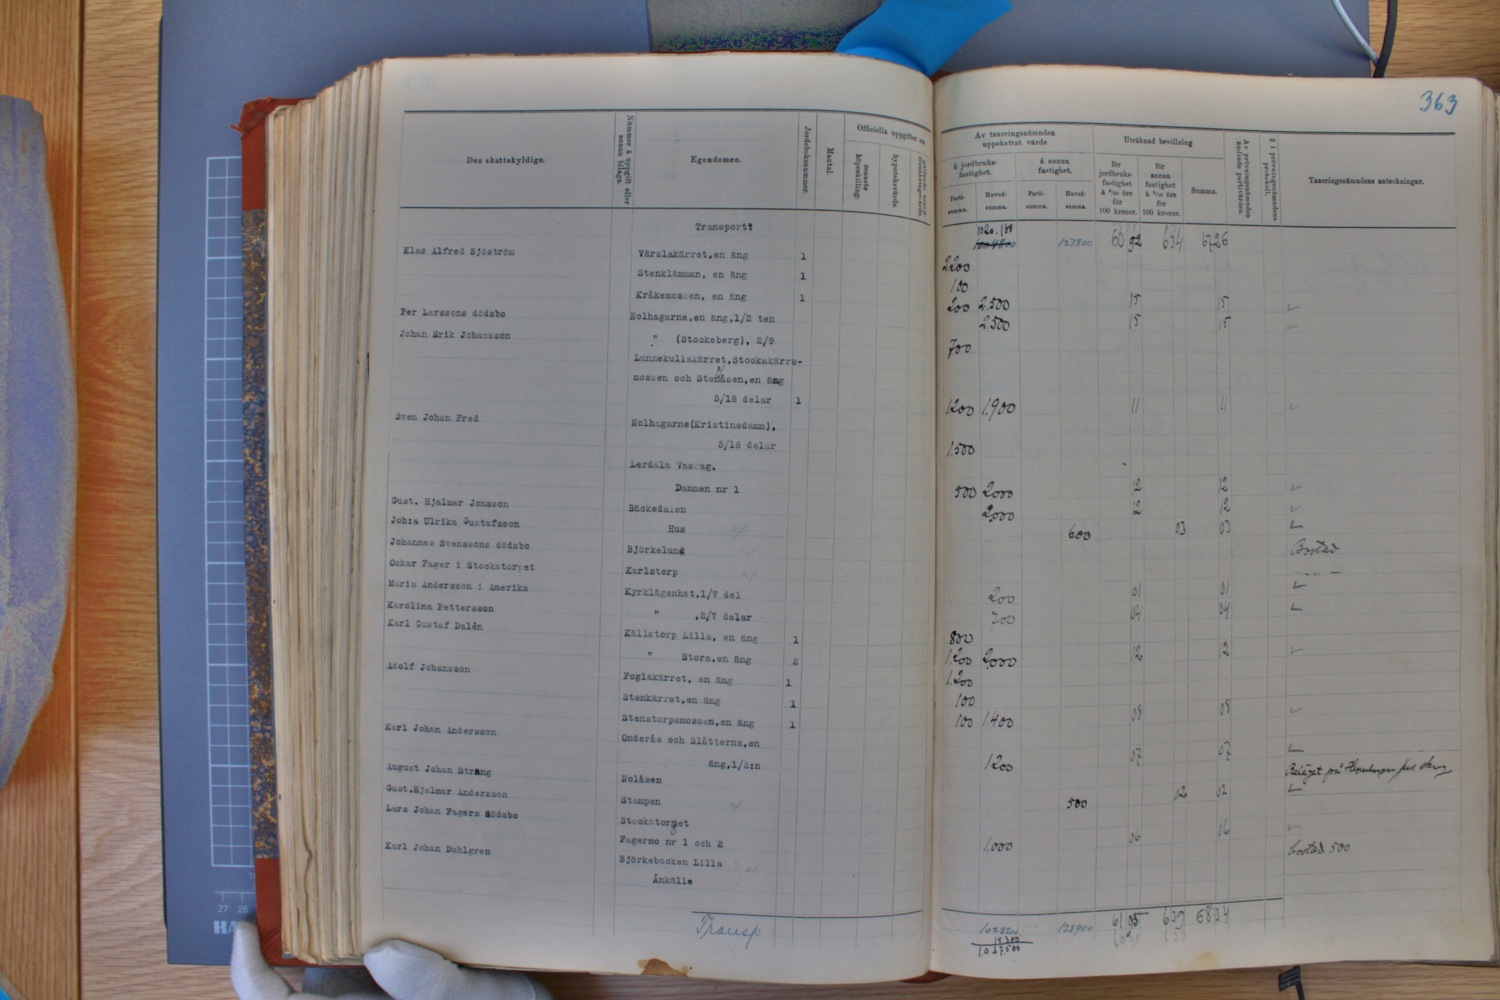 363
Den skattskyldige.
Nummer å uppgift eller annan bilaga.
Egendomen.
Jordeboksnummer.
Mantal.
Officiella uppgifter om
senaste köpeskilling.
hypoteksvärde.
Av taxeringsnämnden uppskattat värde
å jordbruksfastighet.
å annan fastighet.
Partisumma.
Huvudsumma.
Partisumma.
Huvudsumma.
Uträknad bevillning
för jordbruksfastighet
för annan fastighet
för 100 kronor.
för 100 kronor.
Summa.
Av prövningsnämnden ändrade partivärden.
§ i prövningsnämndens protokoll.
Taxeringsnämndens anteckningar.
Transport: 127800 60 92 634 6726
Klas Alfred Sjöström Värslakärret, en äng 1 2200
Stenklämman, en äng 1 100
Kråkemossen, en äng 1 200 2.500 15 15
Per Larssons dödsbo Nolhagarne, en äng, 1/2 ten 2.500 15 15
Johan Erik Johansson " (Stockeberg), 2/9 700
Lunnekullakärret, Stockakärrs-
mossen och Stenåsen, en äng
5/18 delar 1 1200 1.900 11 11
Sven Johan Fred Nolhagarne(Kristinedamm),
5/18 delar 1.500
Lerdala Vassag.
Dammen nr 1 500 2000 12 12
Gust. Hjalmar Jonsson Bäckedalen 2000 12 12
Joh:a Ulrika Gustafsson Hus 600 03 03
Johannes Svenssons dödsbo Björkelund Bostad
Oskar Fager i Stockatorpet Karlstorp
Maria Andersson i Amerika Kyrklägenhet, 1/7 del 200 01 01
Karolina Pettersson " ,2/7 delar 700 04 04
Karl Gustaf Dalén Källstorp Lilla, en äng 1 800
" Stora, en äng 2 1.200 2000 12 12
Adolf Johansson Foglakärret, en äng 1 1.200
Stenkärret, en äng 1 100
Stenstorpsmossen, en äng 1 100 1.400 08 08
Karl Johan Andersson Onderås och Slätterna, en
äng, 1/2:n 1200 07 07
August Johan Strang Nolåsen
Gust. Hjalmar Andersson Stampen 500 02 02
Lars Johan Fagers dödsbo Stockatorpet
Fagermo nr 1 och 2 1.000 06 06
Karl Johan Dahlgren Björkebacken Lilla bostad 500
Ånkälle
Transp 128900 61 95 639 6834